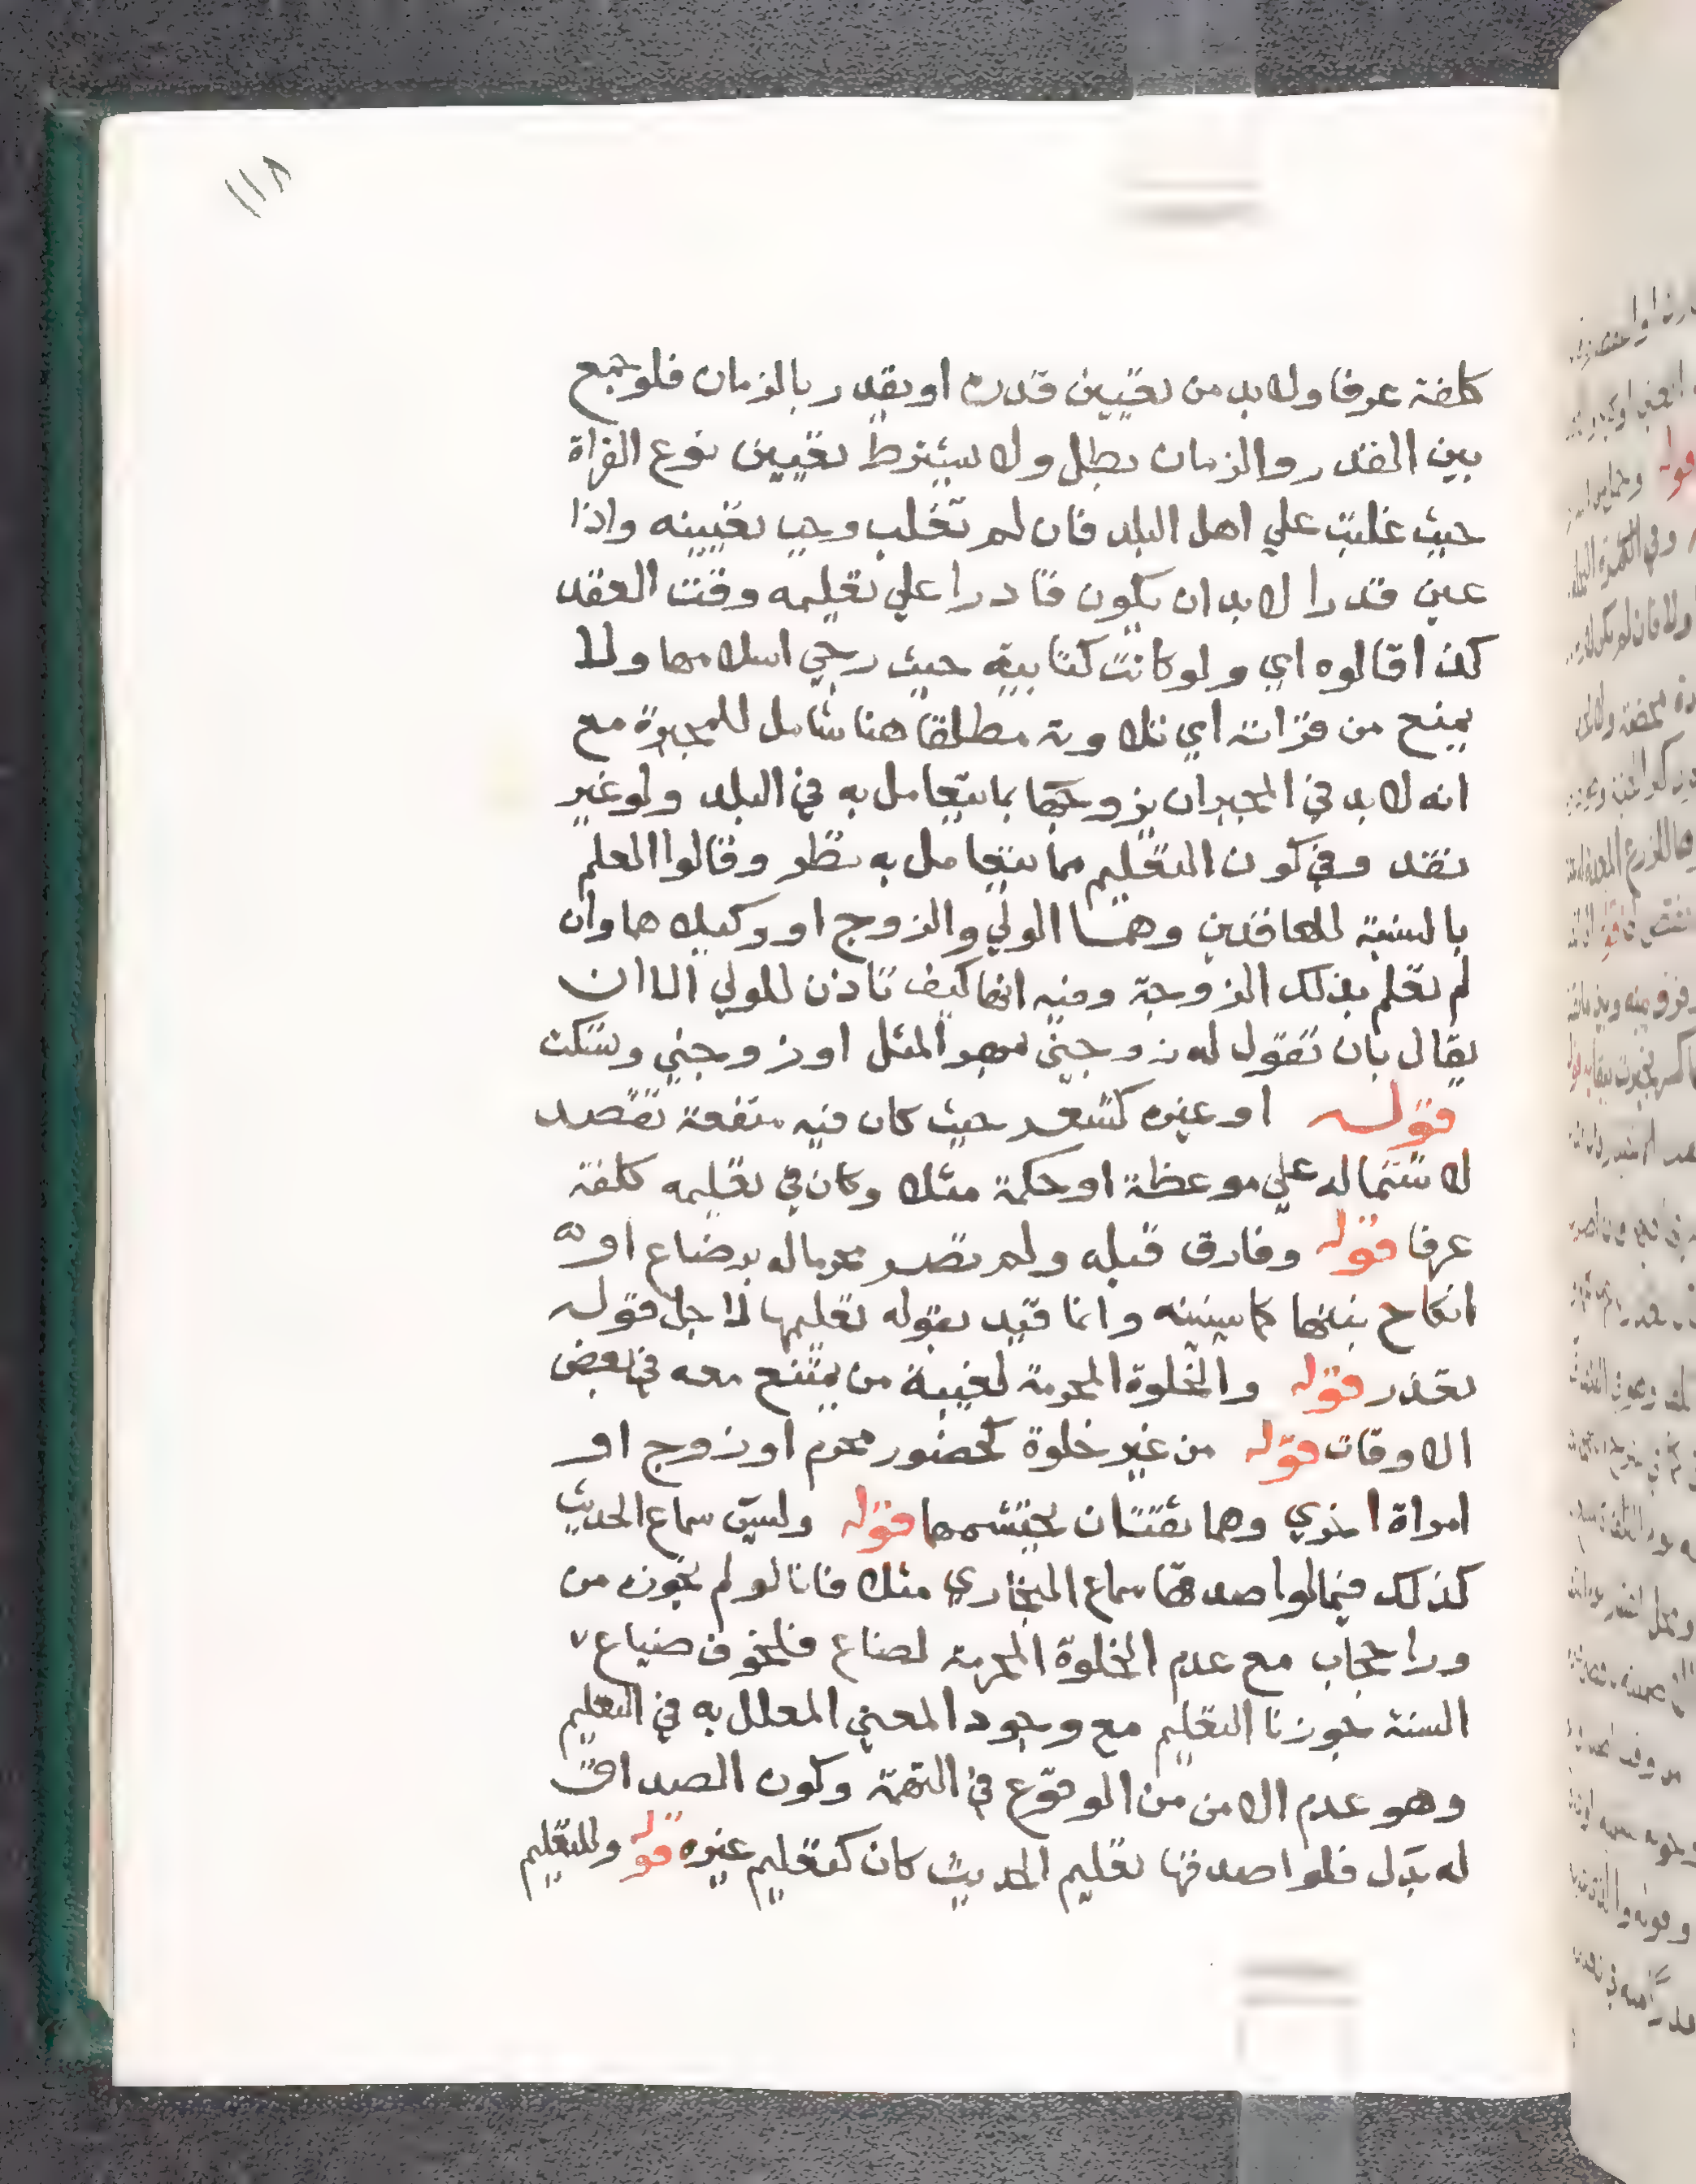 ١١٨
كلفة عرفا ولا بد من تعيين قدره او تقدير بالزمان فلو جمع
بين القدر والزمان بطل ولا يشترط تعيين نوع القراة
حيث غلبت علي اهل البلد فان لم تغلب وجب تعيينه واذا
عين قدرا لا بد ان يكون قادرا علي تعليمه وقت العقد
كذا قالوه اي ولو كانت كتابية حيث رجي اسلامها ولا
يمنع من قراته اي تلاوته مطلقا هنا شامل للمجبرة مع
انه لا بد في المجبر ان يزوجها بما يتعامل به في البلد ولو غير
نقد وفي كون التعليم مما يتعامل به نظر وقالوا العلم
بالنسبة للعاقدين وهما الولي والزوج او وكيلاهما وان
لم تعلم بذلك الزوجة وفيه انها كيف تاذن للولي الا ان
يقال بان تقول له زوجني بمهر المثل او زوجني وتسكت
قوله او غيره كشعر حيث كان فيه منفعة تقصد
لاشتماله علي موعظة او حكمة مثلا وكان في تعليمه كلفة
عرفا قوله وفارق قبله ولم تصر محرما له برضاع او
انكاح بنتها كما سيبينه وانما قيد بقوله تعليمها لاجل قوله
تعذر قوله والخلوة المحرمة لغيبة من يمتنع معه في بعض
الاوقات قوله من غير خلوة كحضور محرم او زوج او
امراة اخري وهما ثقتان يحتشمهما قوله وليس سماع الحديث
كذلك فيما لو اصدقها سماع البخاري مثلا فانا لو لم نجوزه من
ورا حجاب مع عدم الخلوة المحرمة لضاع فلخوف ضياع
السنة جوزنا التعليم مع وجود المعني المعلل به في التعليم
وهو عدم الامن من الوقوع في التهمة وكون الصداق
له بدل فلو اصدقها تعليم الحديث كان كتعليم غيره قوله وللتعليم